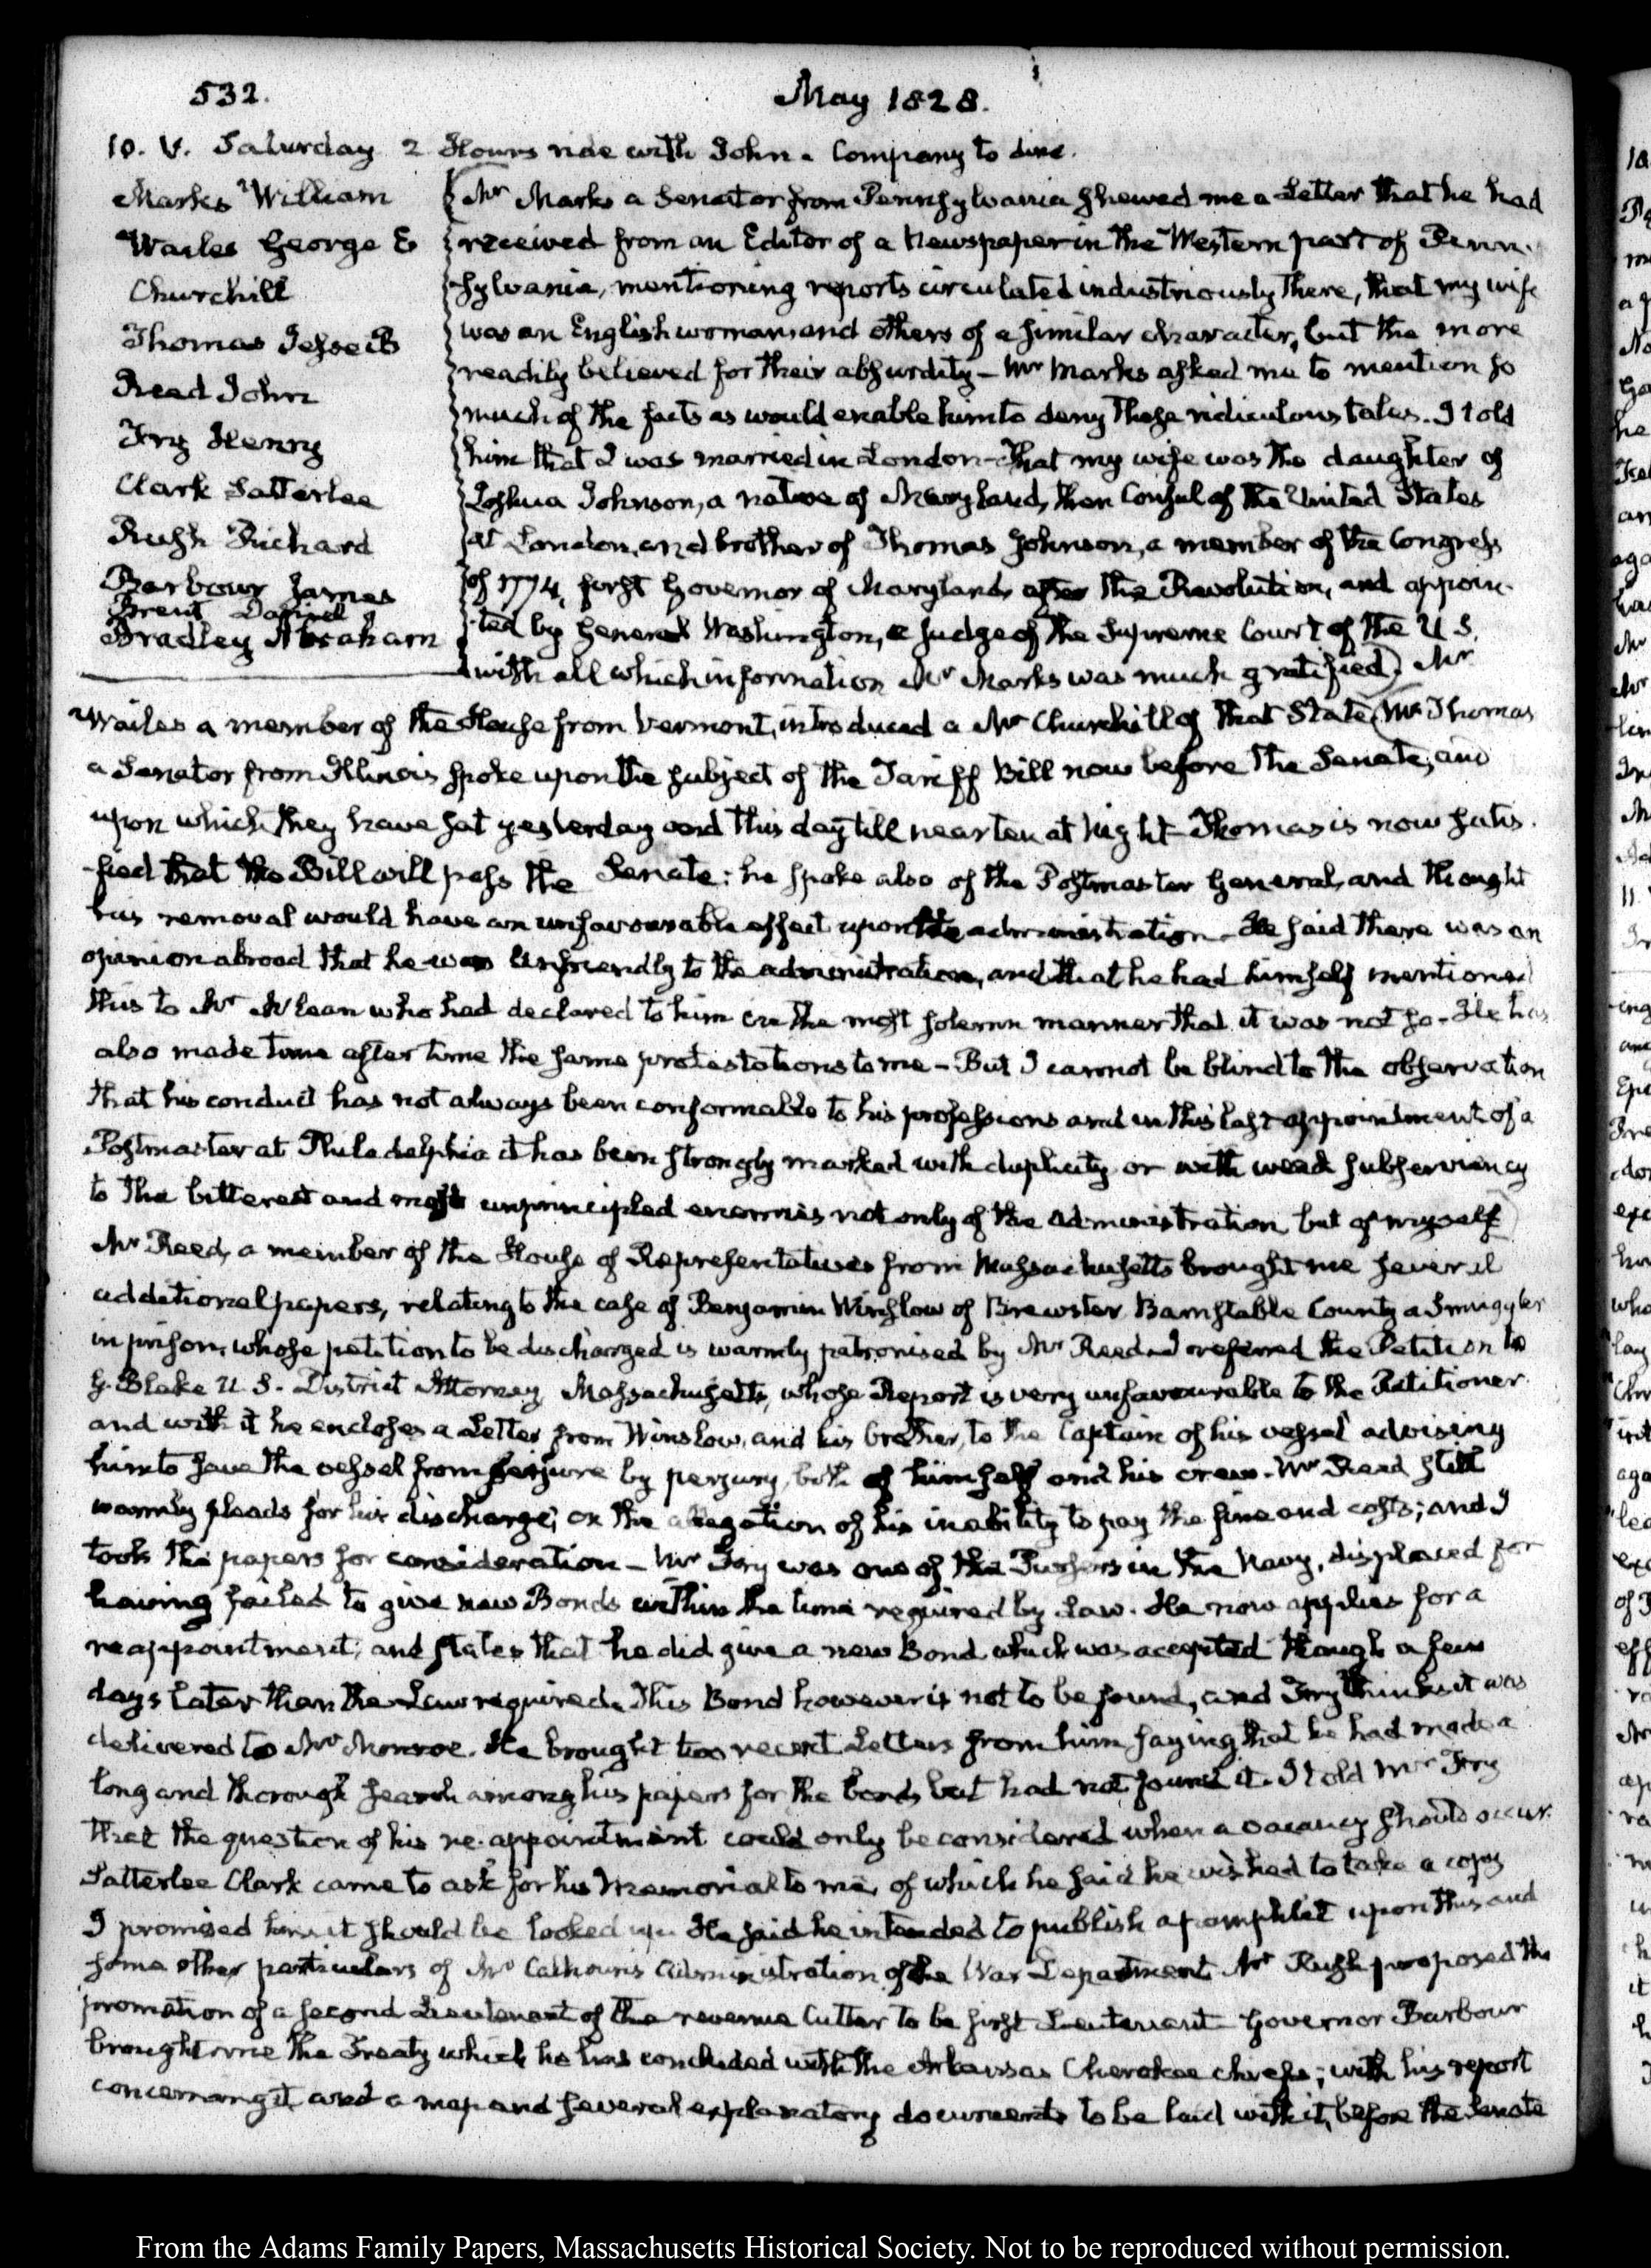 532.
May 1828.
10. V. Saturday 2 Hours ride with John. Company to dine.
Marks William
Wailes George E
Churchill
Thomas Jesse B
Reed John
Fry Henry
Clark Satterlee
Rush Richard
Barbour James
Brent Daniel
Bradley Abraham
Mr Marks a Senator from Pennsylvania shewed me a Letter that he had
received from an Editor of a Newspaper in the Western part of Penn-
sylvania, mentioning reports circulated industriously there, that my wife
was an English woman, and others of a similar character, but the more
readily believed for their absurdity — Mr Marks asked me to mention so
much of the facts as would enable him to deny those ridiculous tales. I told
him that I was married in London — That my wife was the daughter of
Joshua Johnson, a native of Maryland, then Consul of the United States
at London, and brother of Thomas Johnson, a member of the Congress
of 1774, first Governor of Maryland, after the Revolution, and appoin-
-ted by General Washington, a Judge of the Supreme Court of the U.S.
with all which information Mr Marks was much gratified) Mr
Wailes a member of the House from Vermont, introduced a Mr Churchill of that State (Mr Thomas
a Senator from Illinois spoke upon the subject of the Tariff Bill now before the Senate; and
upon which they have sat yesterday and this day till near ten at Night — Thomas is now satis-
-fied that the Bill will pass the Senate: he spoke also of the Postmaster General, and thought
his removal would have an unfavourable effect upon the administration — He said there was an
opinion abroad that he was unfriendly to the administration, and that he had himself mentioned
this to Mr McLean who had declared to him in the most solemn manner that it was not so — He has
also made time after time the same protestations to me — But I cannot be blind to the observation
that his conduct has not always been conformable to his professions and in this last appointment of a
Postmaster at Philadelphia it has been strongly marked with duplicity or with weak subserviency
to the bitterest and most unprincipled enemies not only of the Administration but of myself)
Mr Reed, a member of the House of Representatives from Massachusetts brought me several
additional papers, relating to the case of Benjamin Winslow of Brewster Barnstable County a Smuggler
in prison, whose petition to be discharged is warmly patronised by Mr Reed — I referred the Petition to
G. Blake U.S. District Attorney Massachusetts, whose Report is very unfavourable to the Petitioner
and with it he encloses a Letter from Winslow, and his brother, to the Captain of his vessel advising
him to save the vessel from seizure by perjury, both of himself and his crew. Mr Reed still
warmly pleads for his discharge; on the allegation of his inability to pay the fine and costs; and I
took the papers for consideration — Mr Fry was one of the Pursers in the Navy, displaced for
having failed to give new Bonds within the time required by Law. He now applies for a
reappointment; and states that he did give a new Bond which was accepted though a few
days later than the Law required. This Bond however is not to be found, and Fry thinks it was
delivered to Mr Monroe. He brought two recent Letters from him saying that he had made a
long and thorough search among his papers for the bond, but had not found it. I told Mr Fry
that the question of his re-appointment could only be considered when a vacancy should occur.
Satterlee Clark came to ask for his Memorial to me, of which he said he wished to take a copy
I promised him it should be looked up. He said he intended to publish a pamphlet upon this and
some other particulars of Mr Calhoun's administration of the War Department. Mr Rush proposed the
promotion of a second Lieutenant of the revenue Cutter to be first Lieutenant — Governor Barbour
brought me the Treaty which he has concluded with the Arkansas Cherokee chiefs; with his report
concerning it and a map and several explanatory documents to be laid with it, before the Senate
From the Adams Family Papers, Massachusetts Historical Society. Not to be reproduced without permission.